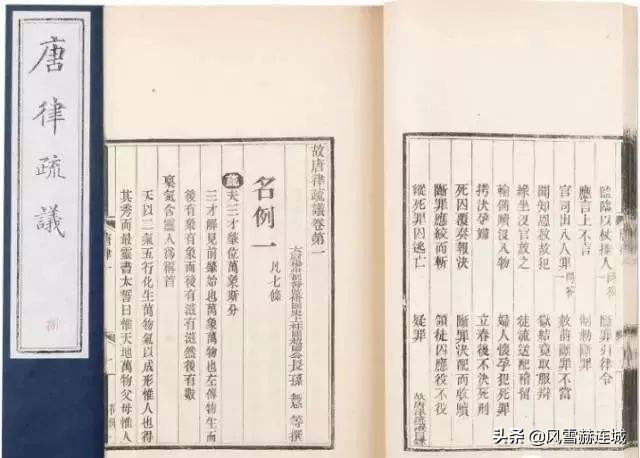 唐律疏議
監臨以杖捶人 問答 斷罪引律令
應言上不言 制勅斷罪
官司出入人罪 問答 赦前斷罪不當
聞知恩赦故犯 獄結竟取服辯
緣坐沒官放之 徒流送配稽留
輸備贖沒入物 婦人懷孕犯死罪
拷決孕婦 立春後不決死刑
死囚覆奏報決 斷罪決配而收贖
斷罪應絞而斬 領徒囚應役不役
縱死罪囚逃亡 疑罪
故唐律疏議卷第一
公長孫 等撰
名例一 凡七條
疏夫三才肇位萬象斯分
三才解見前肇始也萬象萬物也左傳物生
後有象有象而後有滋有滋然後有數
稟氣含靈人為稱首
天以二氣五行化生萬物氣以成形惟人也得
其秀而最靈書太誓曰惟天地萬物父母惟人
唐律一
头条 @风雪赫连城